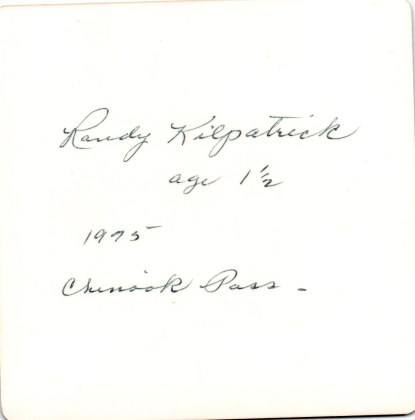 Randy Kilpatrick
age 1 1/2
1975
Chinook Pass -